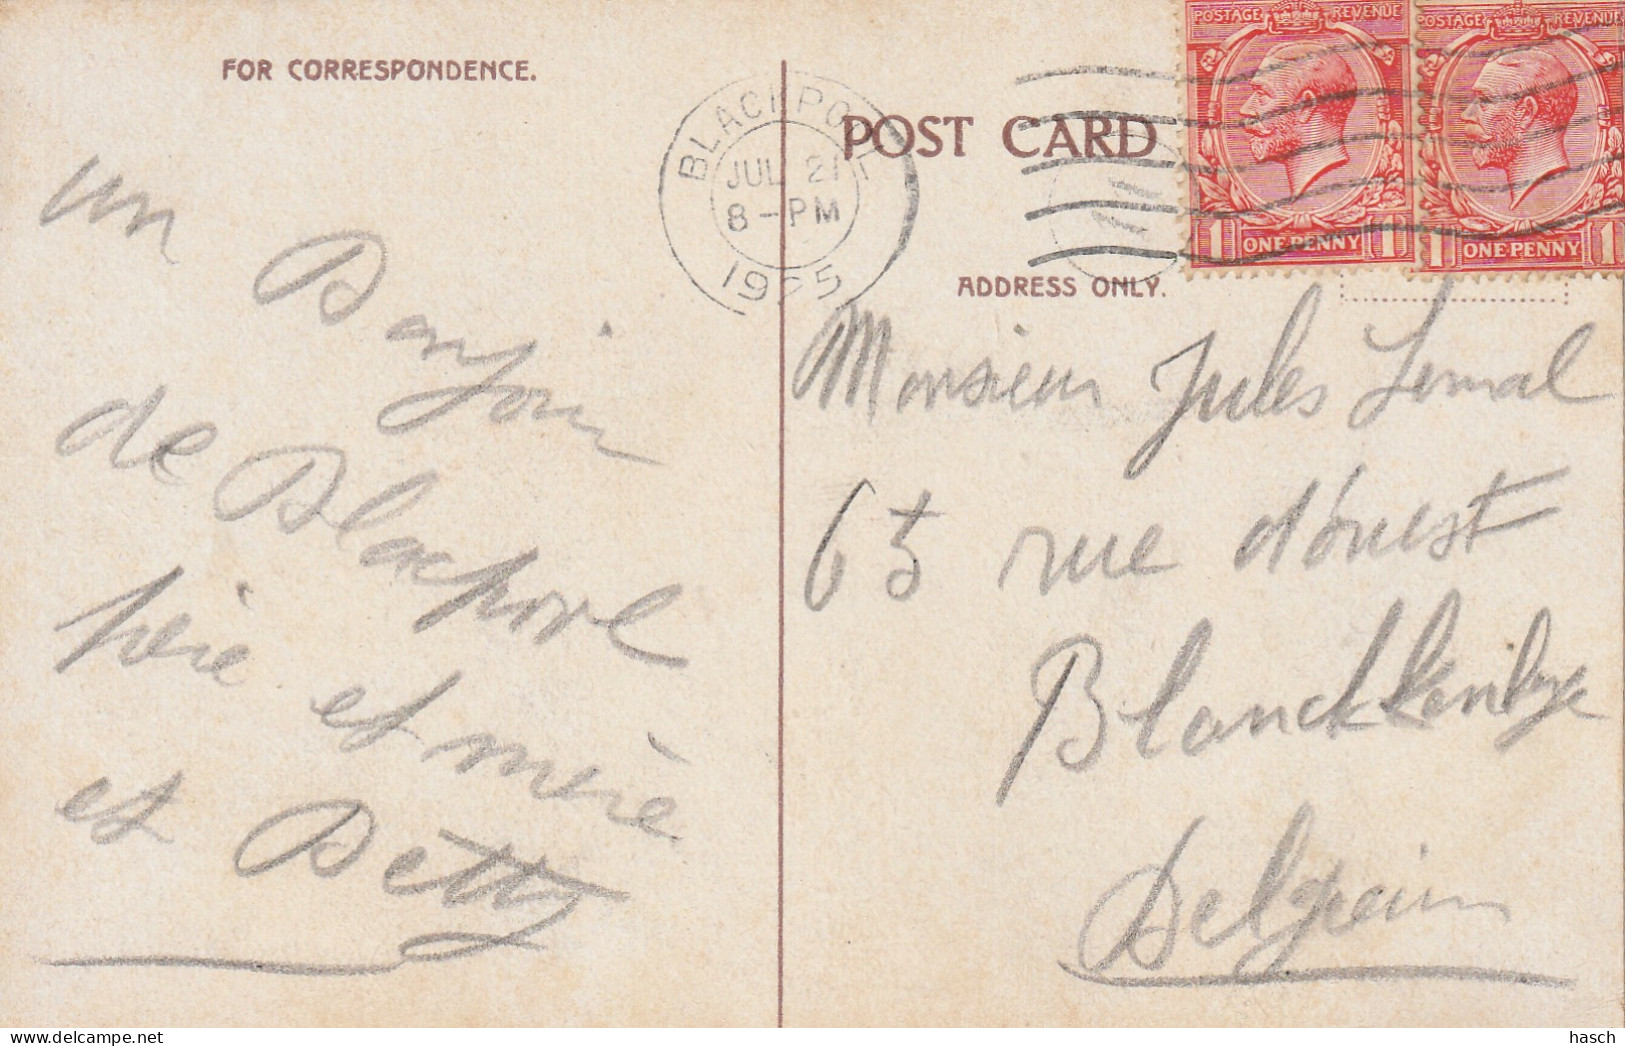 FOR CORRESPONDENCE.
un Bonjour
de Blacpool
père et mère
et Betty
BLACKPOOL
JUL 21
8-PM
1925
POST CARD
ADDRESS ONLY.
POSTAGE REVENUE
1 ONE PENNY 1
POSTAGE REVENUE
1 ONE PENNY 1
Monsieur Jules Lemal
65 rue d'ouest
Blanckkenberge
Belgium
hasch